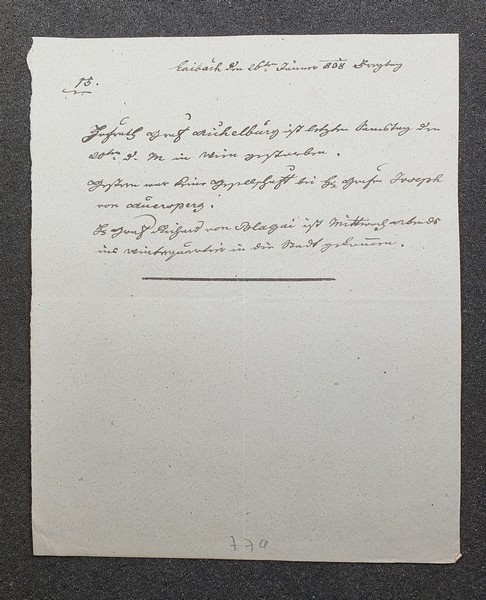 Laibach den 26ten Jänner 838 Freytag
15.
Hofrath Graf Aichelburg ist letzten Samstag den
20ten d. M in Wien gestorben.
Gestern war keine Gesellschaft bei H: Grafen Joseph
von Auersperg.
H: Graf Richard von Blagai ist Mittwoch abends
ins Winterquartier in die Stadt gekommen.
770